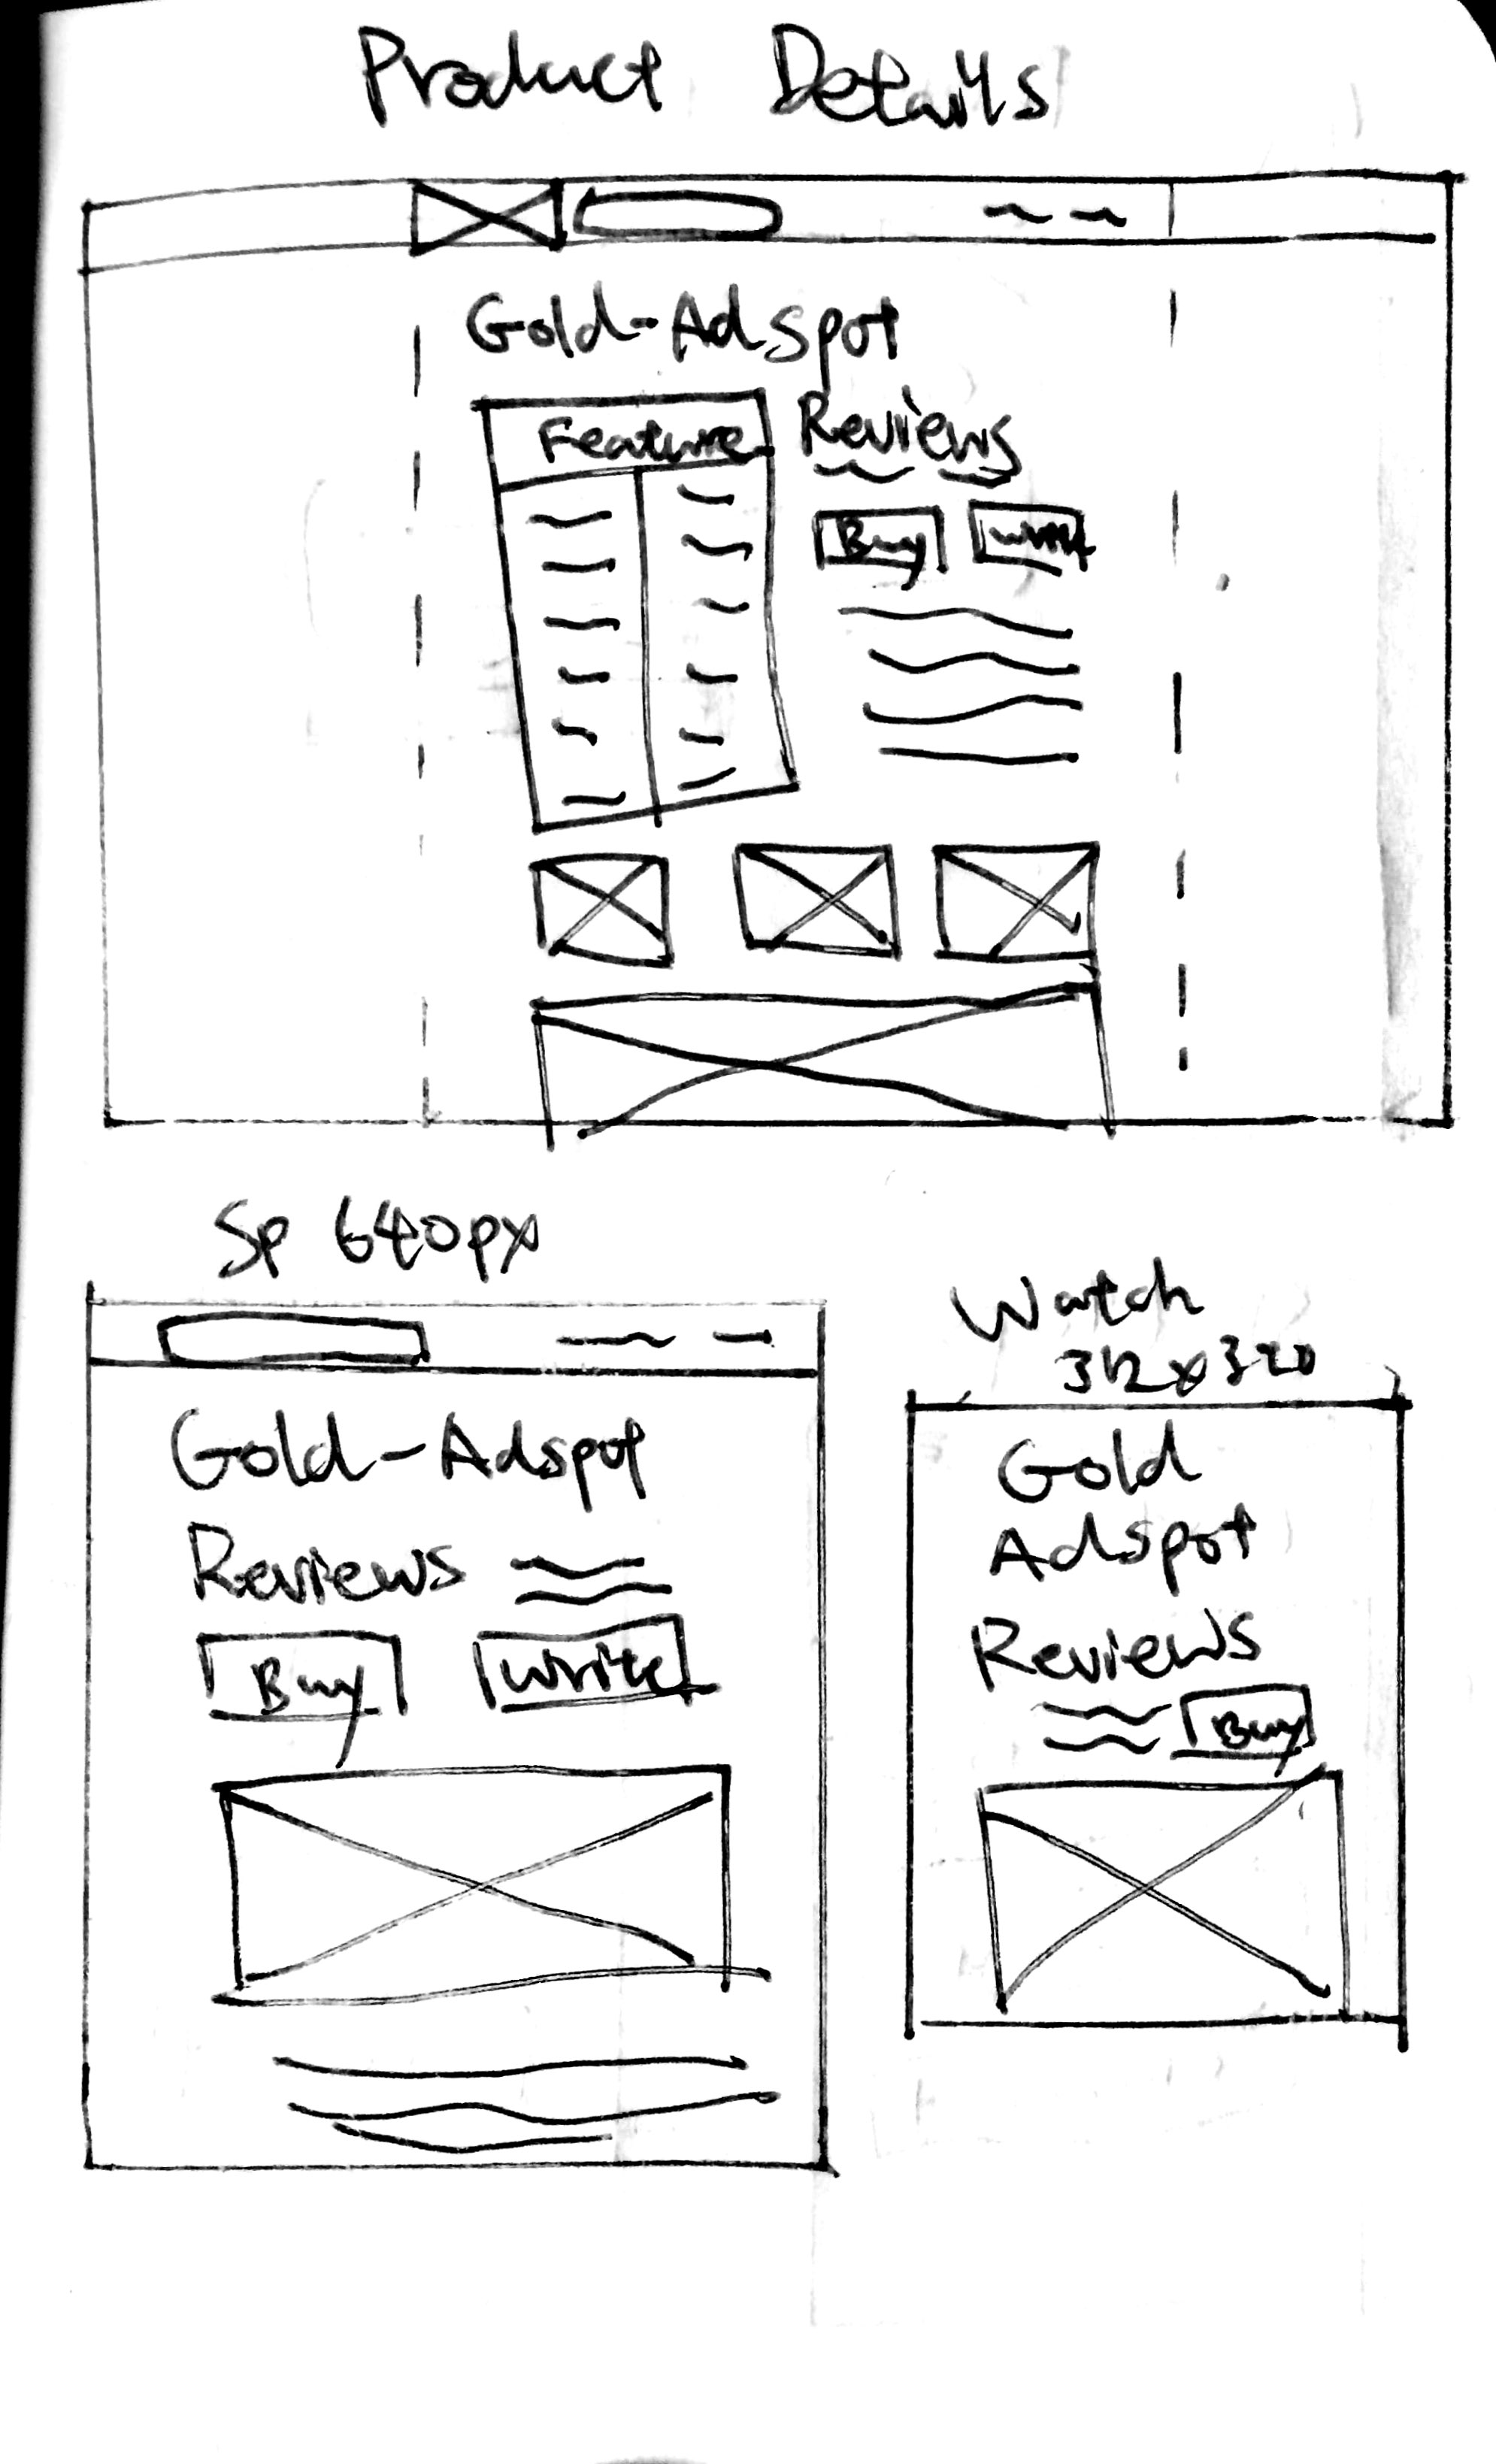 Product Details
Gold-Adspot
Feature
Reviews
Buy
Sp 640px
Gold-Adspot
Reviews
Buy Write
Watch
312x320
Gold
Adspot
Reviews
Buy